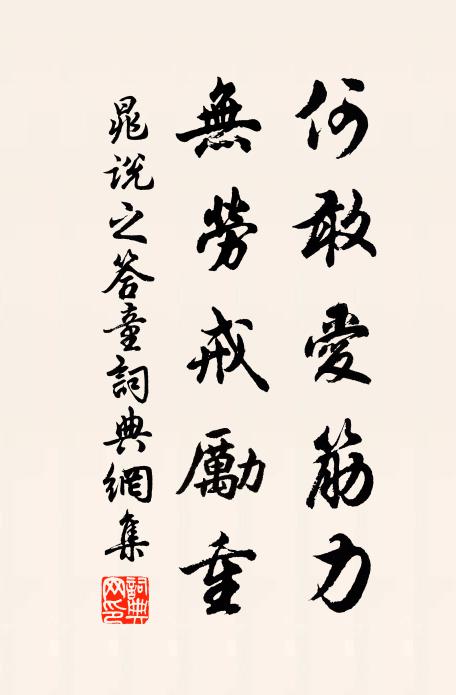 何敢愛筋力
無勞戒勵重
晁說之答童詞典網集
詞典網印